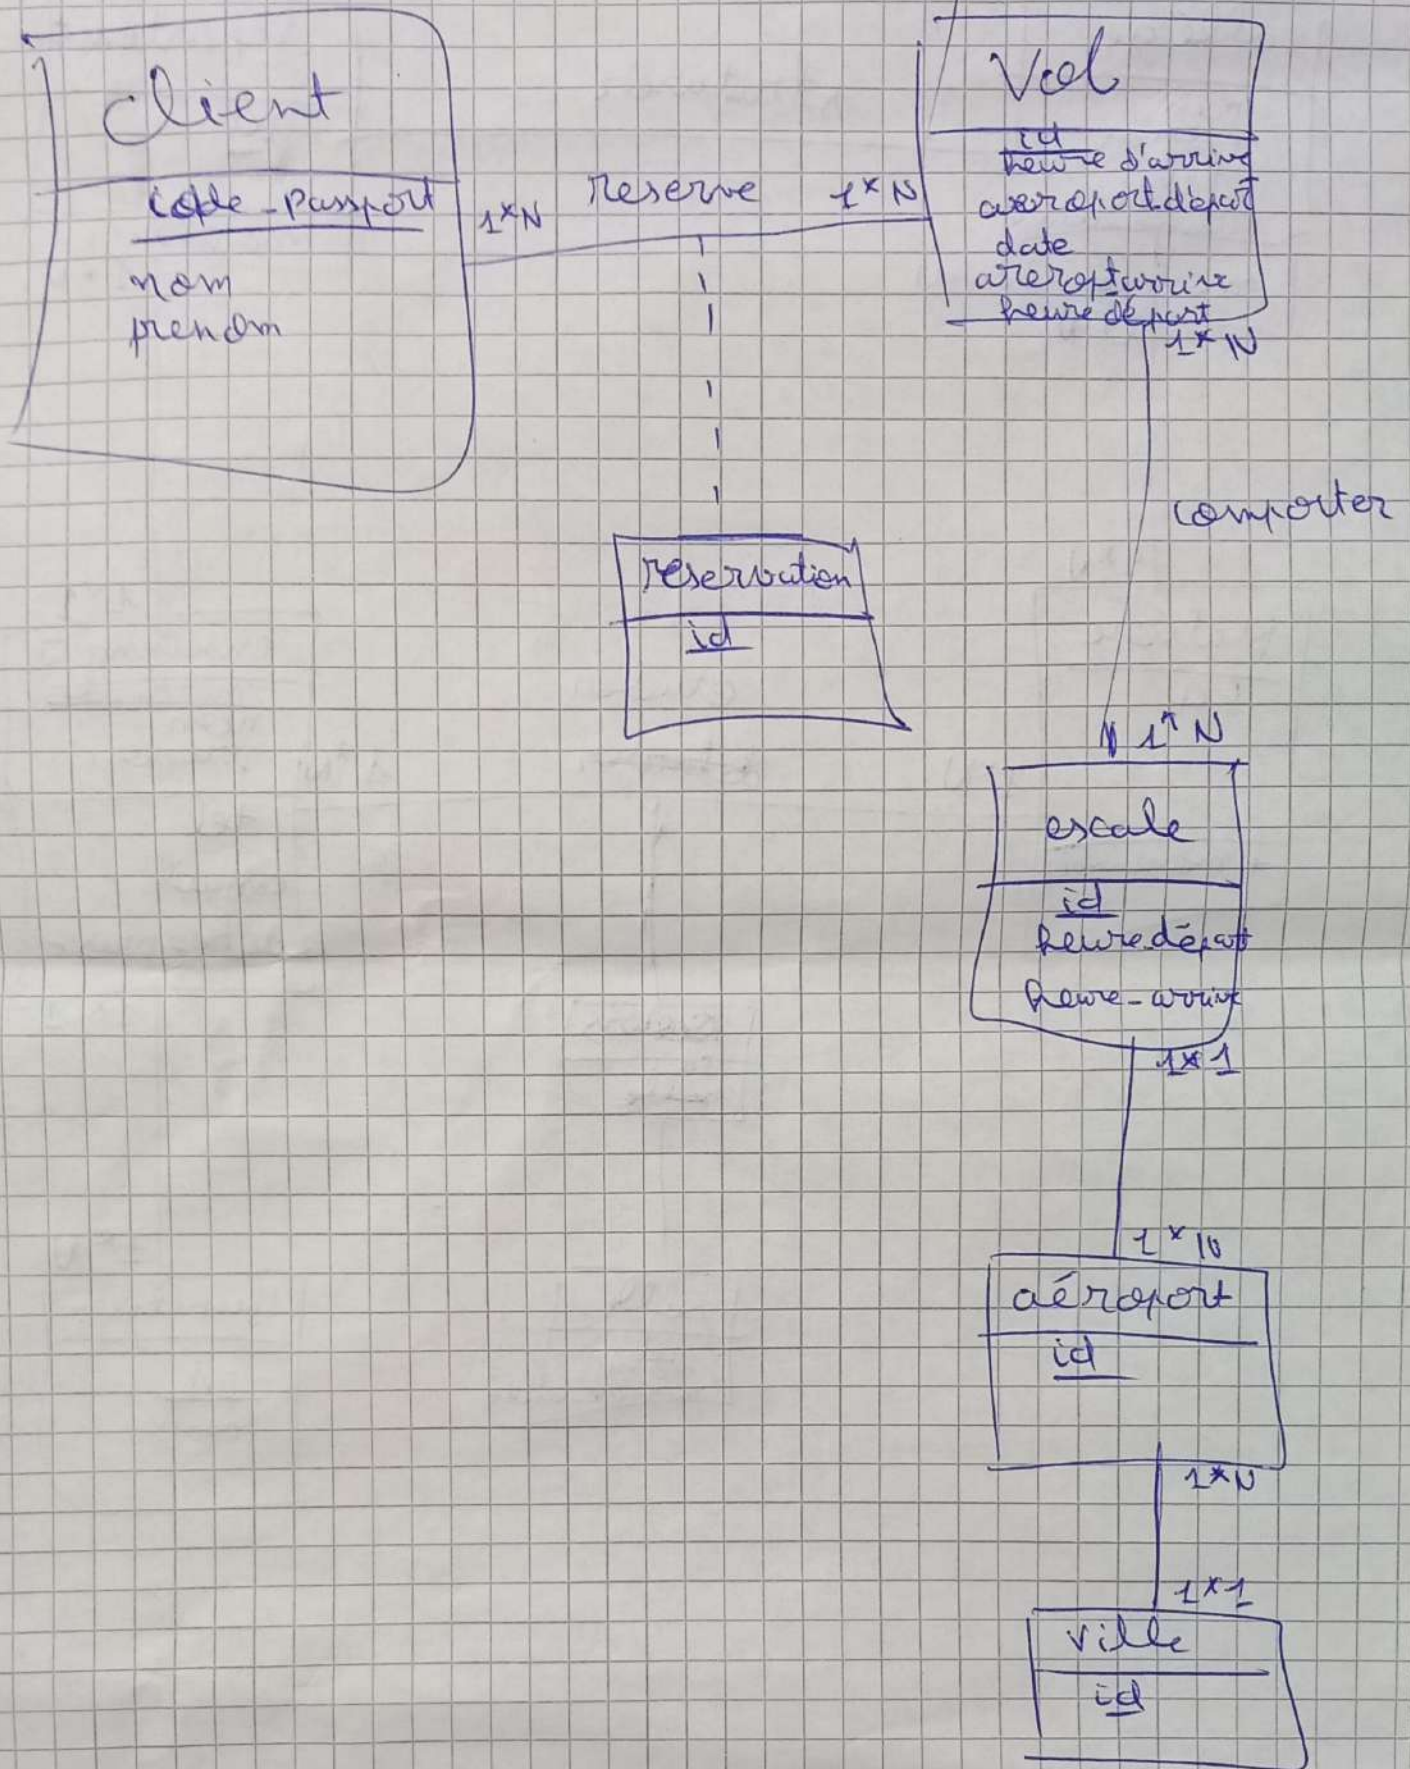 client
code_passport
nom
prenom
1*N
reserve
1*N
Vol
id
heure d'arrive
aeroport départ
date
areroptarrive
heure départ
1*N
comporter
reservation
id
1*N
escale
id
heure départ
heure_arrive
1*1
1*N
aéroport
id
1*N
1*1
ville
id